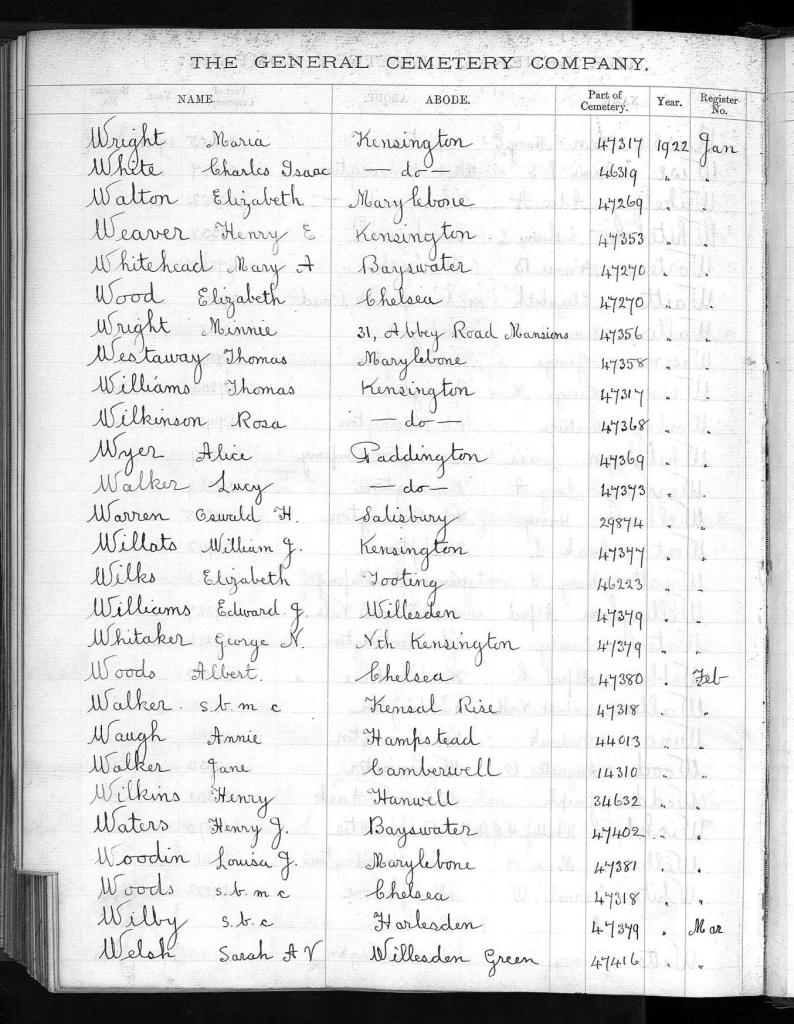 THE GENERAL CEMETERY COMPANY.
NAME. ABODE. Part of Cemetery. Year. Register No.
Wright Maria Kensington 47317 1922 Jan
White Charles Isaac — do — 46319 " "
Walton Elizabeth Marylebone 47269 " "
Weaver Henry E Kensington 47353 " "
Whitehead Mary A Bayswater 47270 " "
Wood Elizabeth Chelsea 47270 " "
Wright Minnie 31, Abbey Road Mansions 47356 " "
Westaway Thomas Marylebone 47358 " "
Williams Thomas Kensington 47317 " "
Wilkinson Rosa — do — 47368 " "
Wyer Alice Paddington 47369 " "
Walker Lucy — do — 47373 " "
Warren Oswald H. Salisbury 29874 " "
Willats William J. Kensington 47377 " "
Wilks Elizabeth Tooting 46223 " "
Williams Edward J. Willesden 47379 " "
Whitaker George N. Nth Kensington 47379 " "
Woods Albert. Chelsea 47380 " Feb
Walker. s.b.m c Kensal Rise 47318 " "
Waugh Annie Hampstead 44013 " "
Walker Jane Camberwell 14310 " "
Wilkins Henry Hanwell 34632 " "
Waters Henry J. Bayswater 47402 " "
Woodin Louisa J. Marylebone 47381 " "
Woods s.b.m c Chelsea 47318 " "
Wilby s.b.c Harlesden 47379 " Mar
Welsh Sarah A V Willesden Green 47416 " "